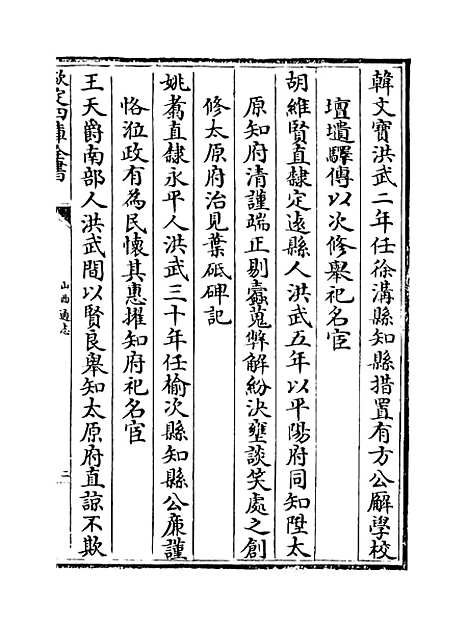 韓文寶洪武二年任徐溝縣知縣措置有方公廨學校
壇壝驛傳以次修舉祀名宦
胡維賢直隸定遠縣人洪武五年以平陽府同知陞太
原知府清謹端正剔蠹蒐弊解紛決壅談笑處之創
修太原府治見葉砥碑記
姚翥直隸永平人洪武三十年任榆次縣知縣公廉謹
恪涖政有為民懷其惠擢知府祀名宦
王天爵南部人洪武間以賢良舉知太原府直諒不欺
欽定四庫全書
山西通志
二